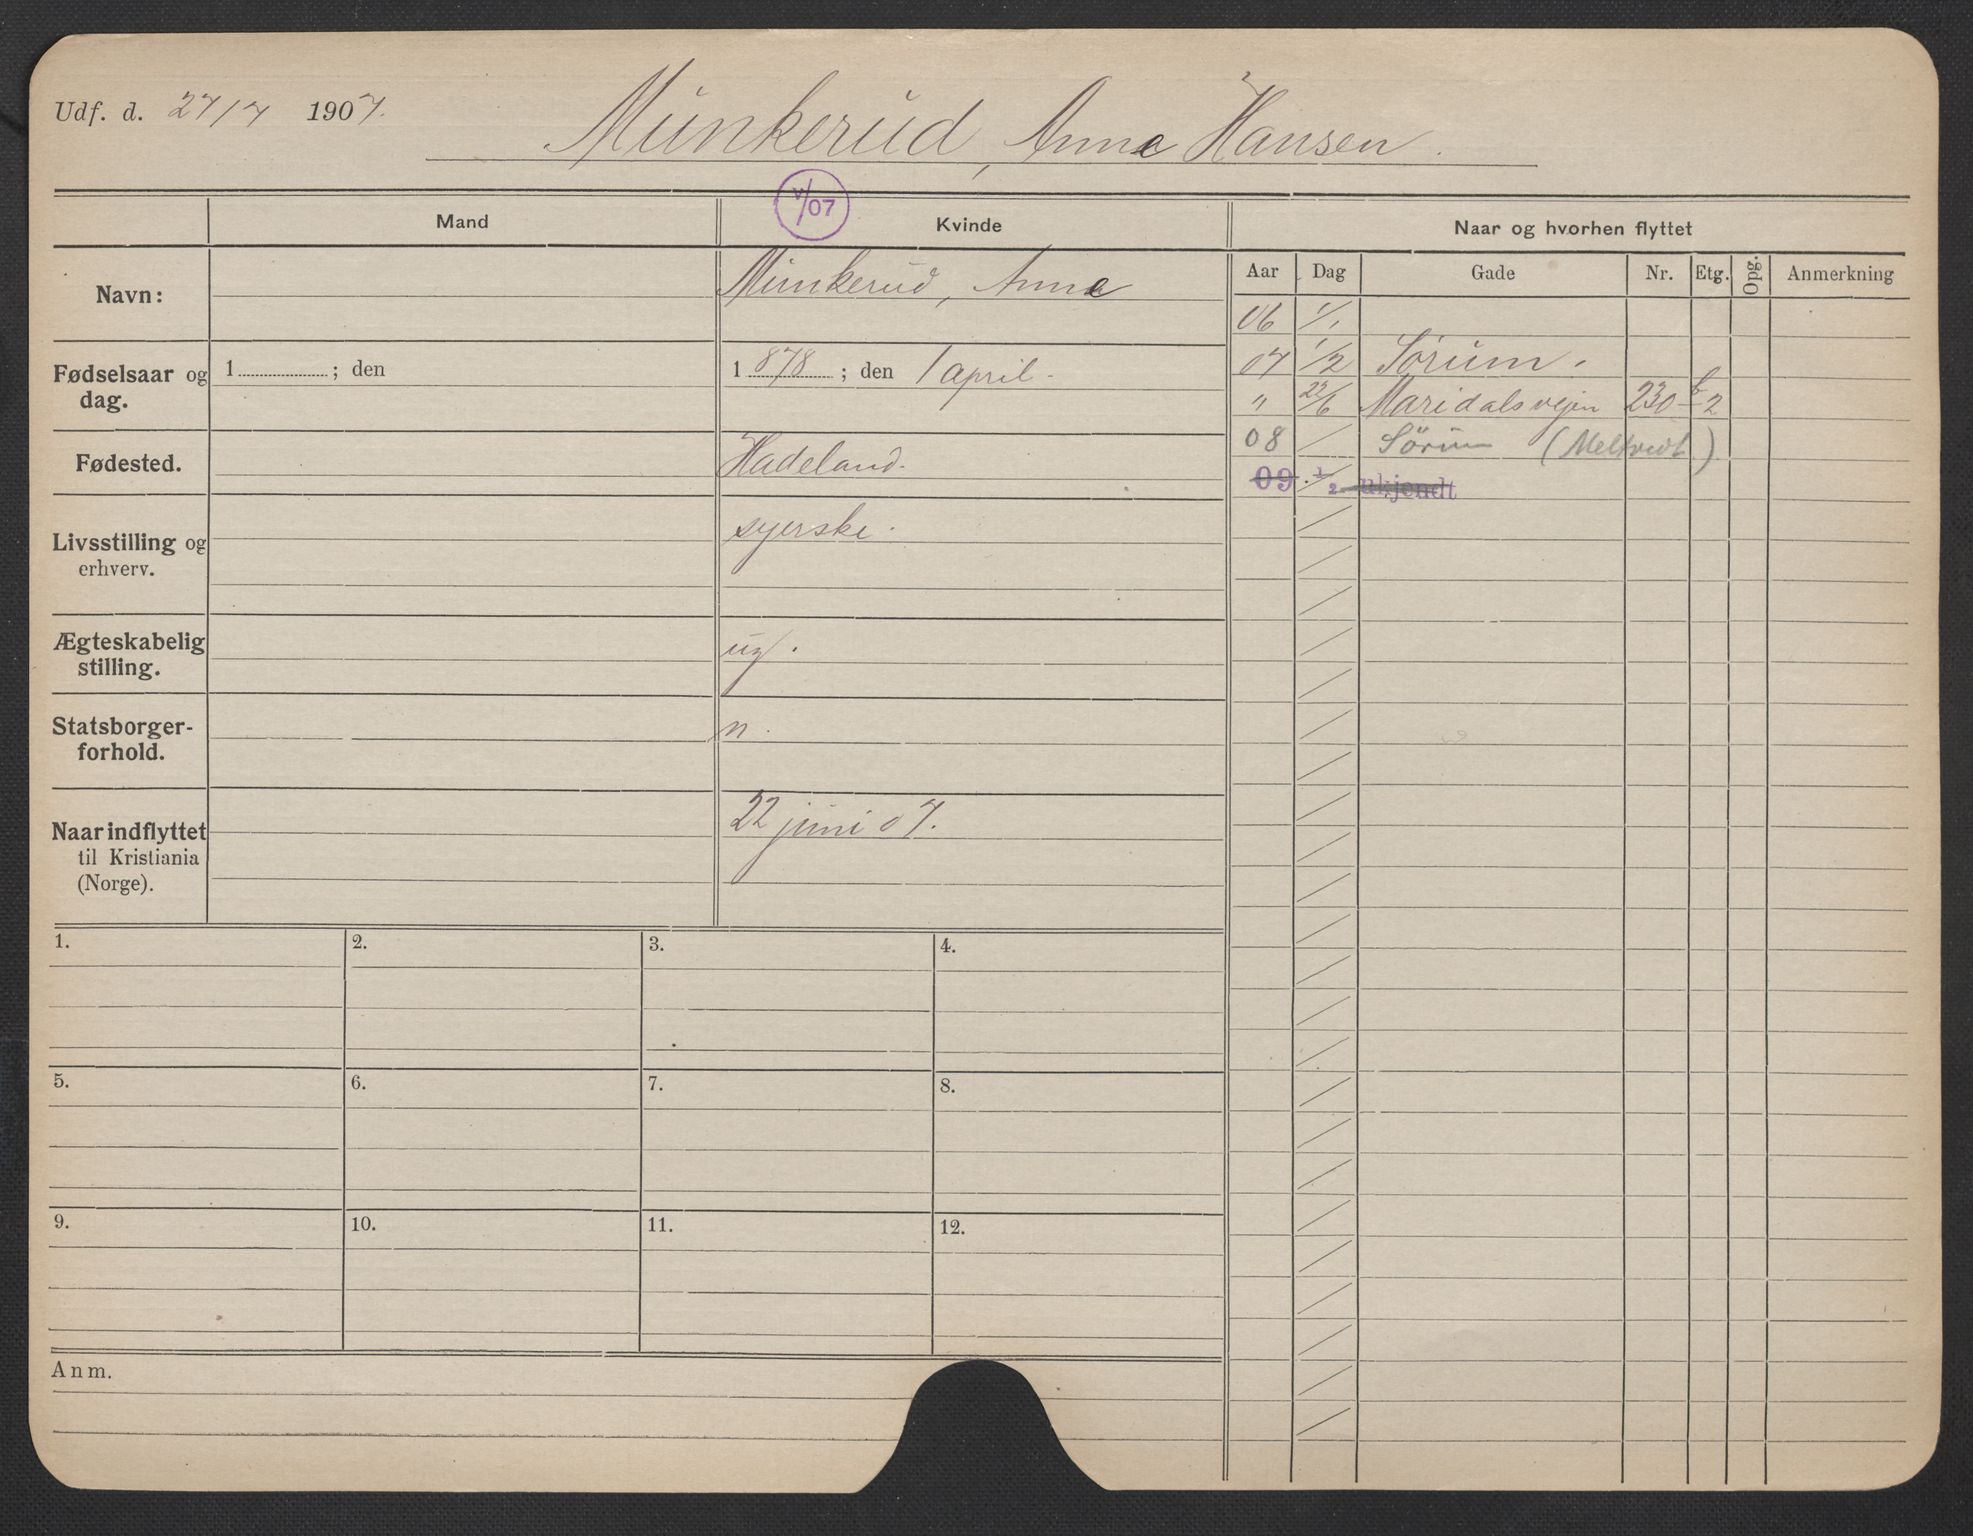 Udf. d. 27/7 1907.
Munkerud, Anna Hansen.
V/07
Mand
Kvinde
Naar og hvorhen flyttet
Aar Dag Gade Nr. Etg. Opg. Anmerkning
Navn:
Munkerud, Anna
Fødselsaar og dag.
1 ; den
1 878 ; den 1 april.
Fødested.
Hadeland.
Livsstilling og erhverv.
syerske.
Ægteskabelig stilling.
ug.
Statsborgerforhold.
n.
Naar indflyttet til Kristiania (Norge).
22 juni 07.
06 1/1
07 1/2 Sørum.
" 22/6 Maridalsvejen 230 b 2
08 / Sörum
09. 1/2 ukjendt
1. 2. 3. 4.
5. 6. 7. 8.
9. 10. 11. 12.
Anm.